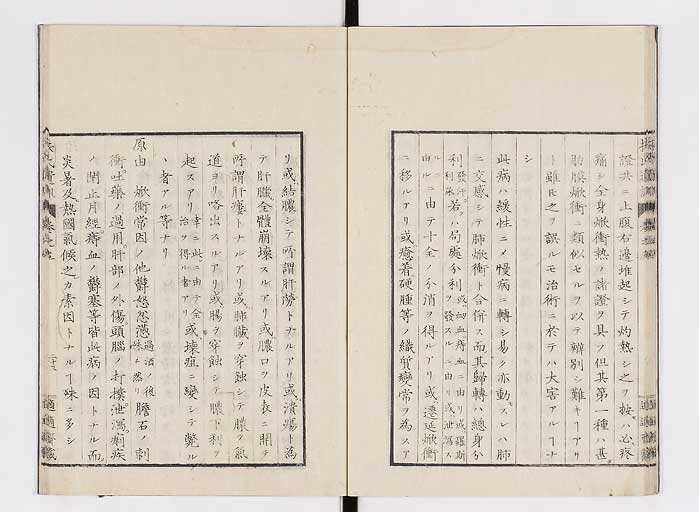 證共ニ上腹右邉堆起シテ灼熱シ之ヲ按ハ必疼
痛シ全身焮衝熱ノ諸證ヲ具フ但其第一種ハ甚
肋膜焮衝ニ類似セルヲ以テ辨別シ難キヿアリ
ト雖𪜈之ヲ誤ルモ治術ニ於テハ大害アルヿナ
シ
此病ハ緩性ニメ慢病ニ轉シ易ク亦動スレハ肺
ニ交感シテ肺焮衝ト合併ス而其歸轉ハ總身分
利發汗利尿若ハ局處分利或衂血痔血ニ由リ或羅斯ヲ發スルニ由リ或泄瀉ス
ルニ由テ十全ノ分消ヲ得ルアリ或遷延焮衝
ニ移ルアリ或癒着硬腫等ノ織質變常ヲ為スア
リ或結膿シテ所謂肝癆トナルアリ或潰瘍ト為
テ肝臓全體崩壊スルアリ或膿口ヲ皮表ニ開テ
所謂肝瘻トナルアリ或肺臓ヲ穿蝕シテ膿ヲ氣
道ヨリ咯出スルアリ或腸ヲ穿蝕シテ膿下利ヲ
起スアリ幸ニ此ニ由テ全治ヲ得ル者アリ或壊疽ニ變シテ斃ル
ヽ者アル等ナリ
原由 焮衝常因ノ他欝怒忿懣過酒ノ後殊ニ然リ膽石ノ刺
衝吐藥ノ過用肝部ノ外傷頭腦ノ打撲泄瀉痢疾
ノ閉止月經痔血ノ欝塞等皆此病ノ因トナル而
炎暑及熱國氣候之カ素因トナルヿ殊ニ多シ